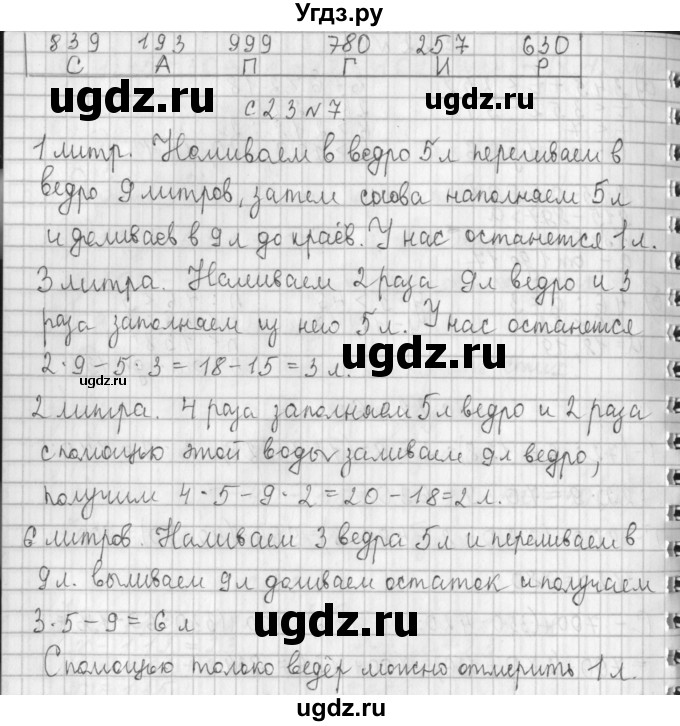 Угдз.ру
839 193 999 780 257 630
С А П Г И Р
ugdz.ru ugdz.ru
с 23 N 7
1 литр. Наливаем в ведро 5л переливаем в
ведро 9 литров, затем согова наполнаем 5л
и деливаев в 9л до краёв. У нас останется 1л.
3 литра. Наливаем 2 раза 9л ведро и 3
раза заполнаем из него 5л. У нас останется
ugdz.ru
2·9-5·3=18-15=3л.
ugdz.ru
2 литра. 4 раза заполнаем 5л ведро и 2 раза
с помощью этой воды заливаем 9л ведро,
ugdz.ru
получим 4·5-9·2=20-18=2л.
6 литров. Наливаем 3 ведра 5л и переливаем в
9л. выливаем 9л доливаем остаток и получаем
3·5-9=6л
ugdz.ru ugdz.ru
С помощью только ведёр можно отмерить 1л.
ugdz.ru